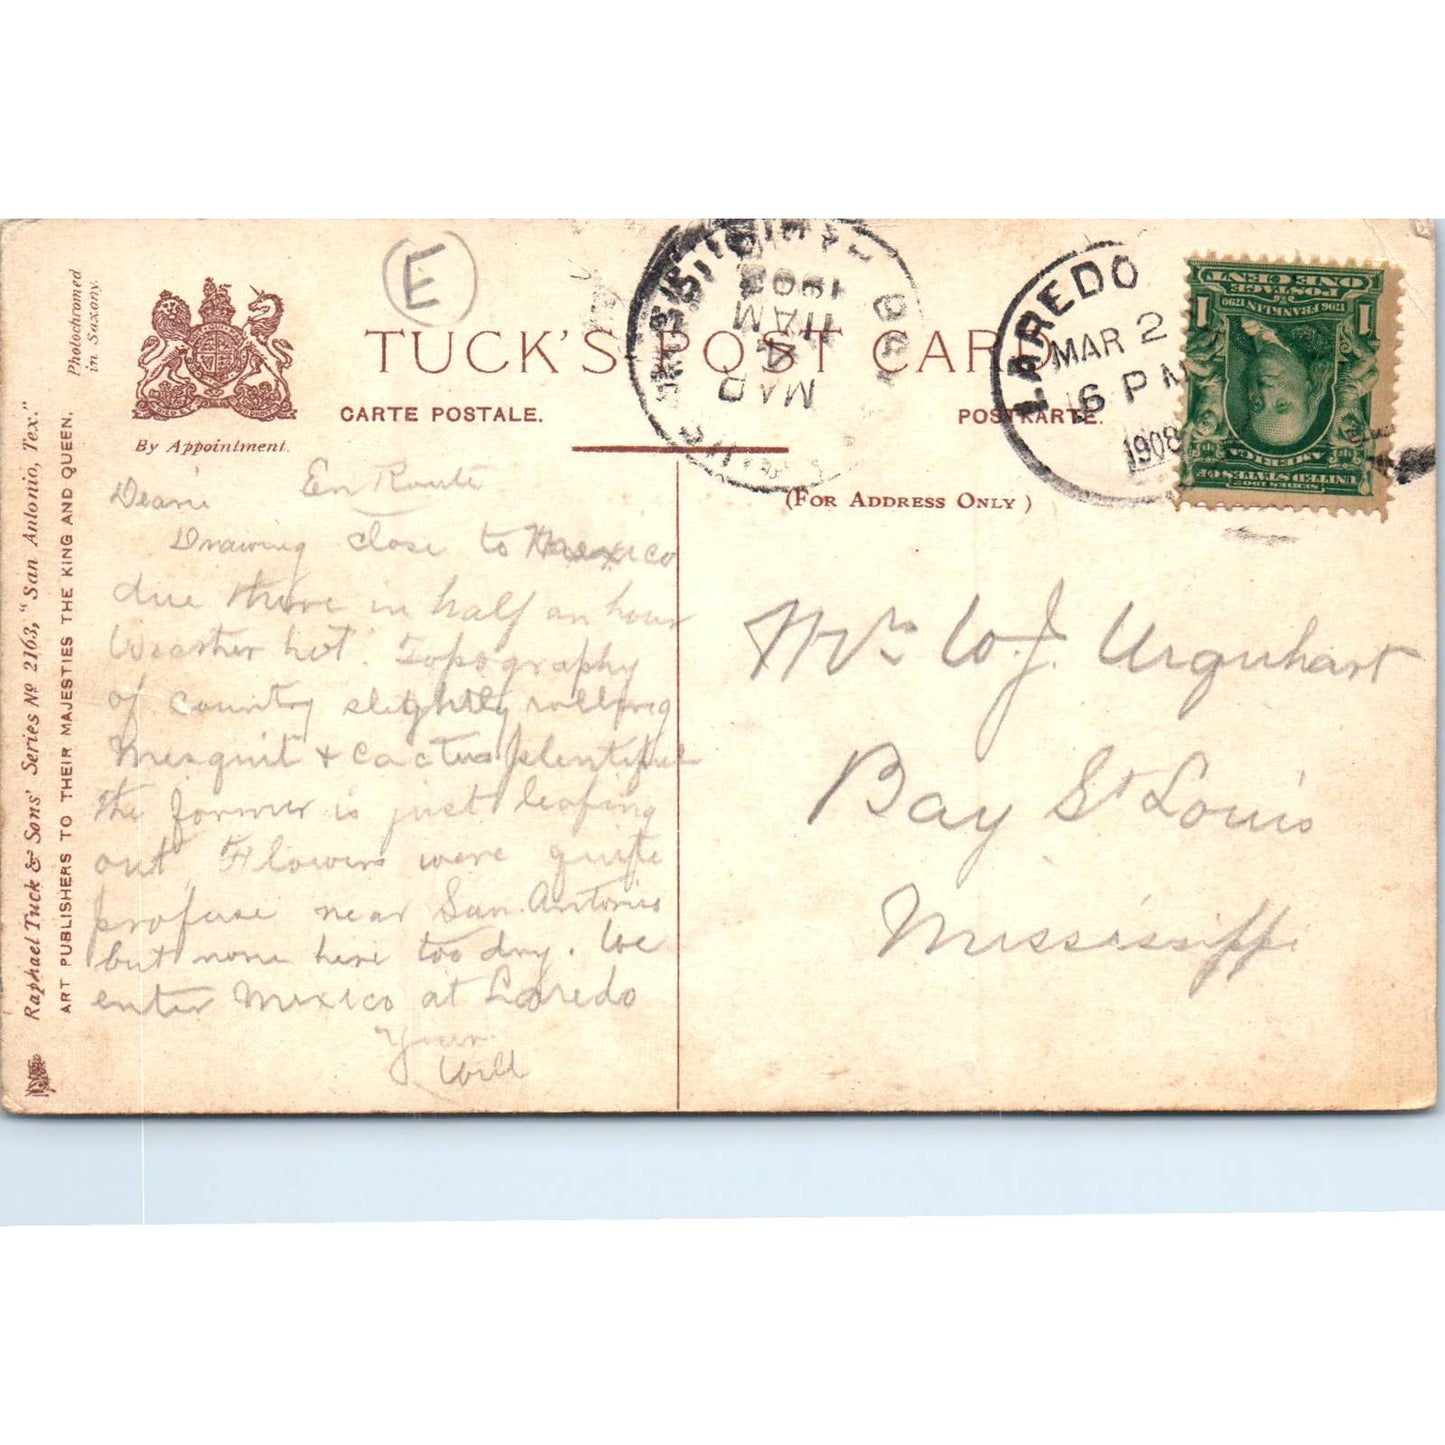 Photochromed
in Saxony.
By Appointment.
Raphael Tuck & Sons' Series No 2163, "San Antonio, Tex."
ART PUBLISHERS TO THEIR MAJESTIES THE KING AND QUEEN.
E
TUCK'S POST CARD
CARTE POSTALE.
POSTKARTE.
(FOR ADDRESS ONLY)
MAR
4
11 AM
1908
LAREDO
MAR 2
6 PM
1908
SERIES 1902
UNITED STATES OF
AMERICA
1706 FRANKLIN 1790
POSTAGE
ONE CENT
1 1
En Route
Dearie
Drawing close to Mexico
due there in half an hour
Weather hot. Topography
of country slightly rolling
Mesquit + cactus plentiful
the former is just leafing
out. Flowers were quite
profuse near San Antonio
but none here too dry. We
enter Mexico at Laredo
Your
Will
Mrs W. J. Urquhart
Bay St Louis
Mississippi